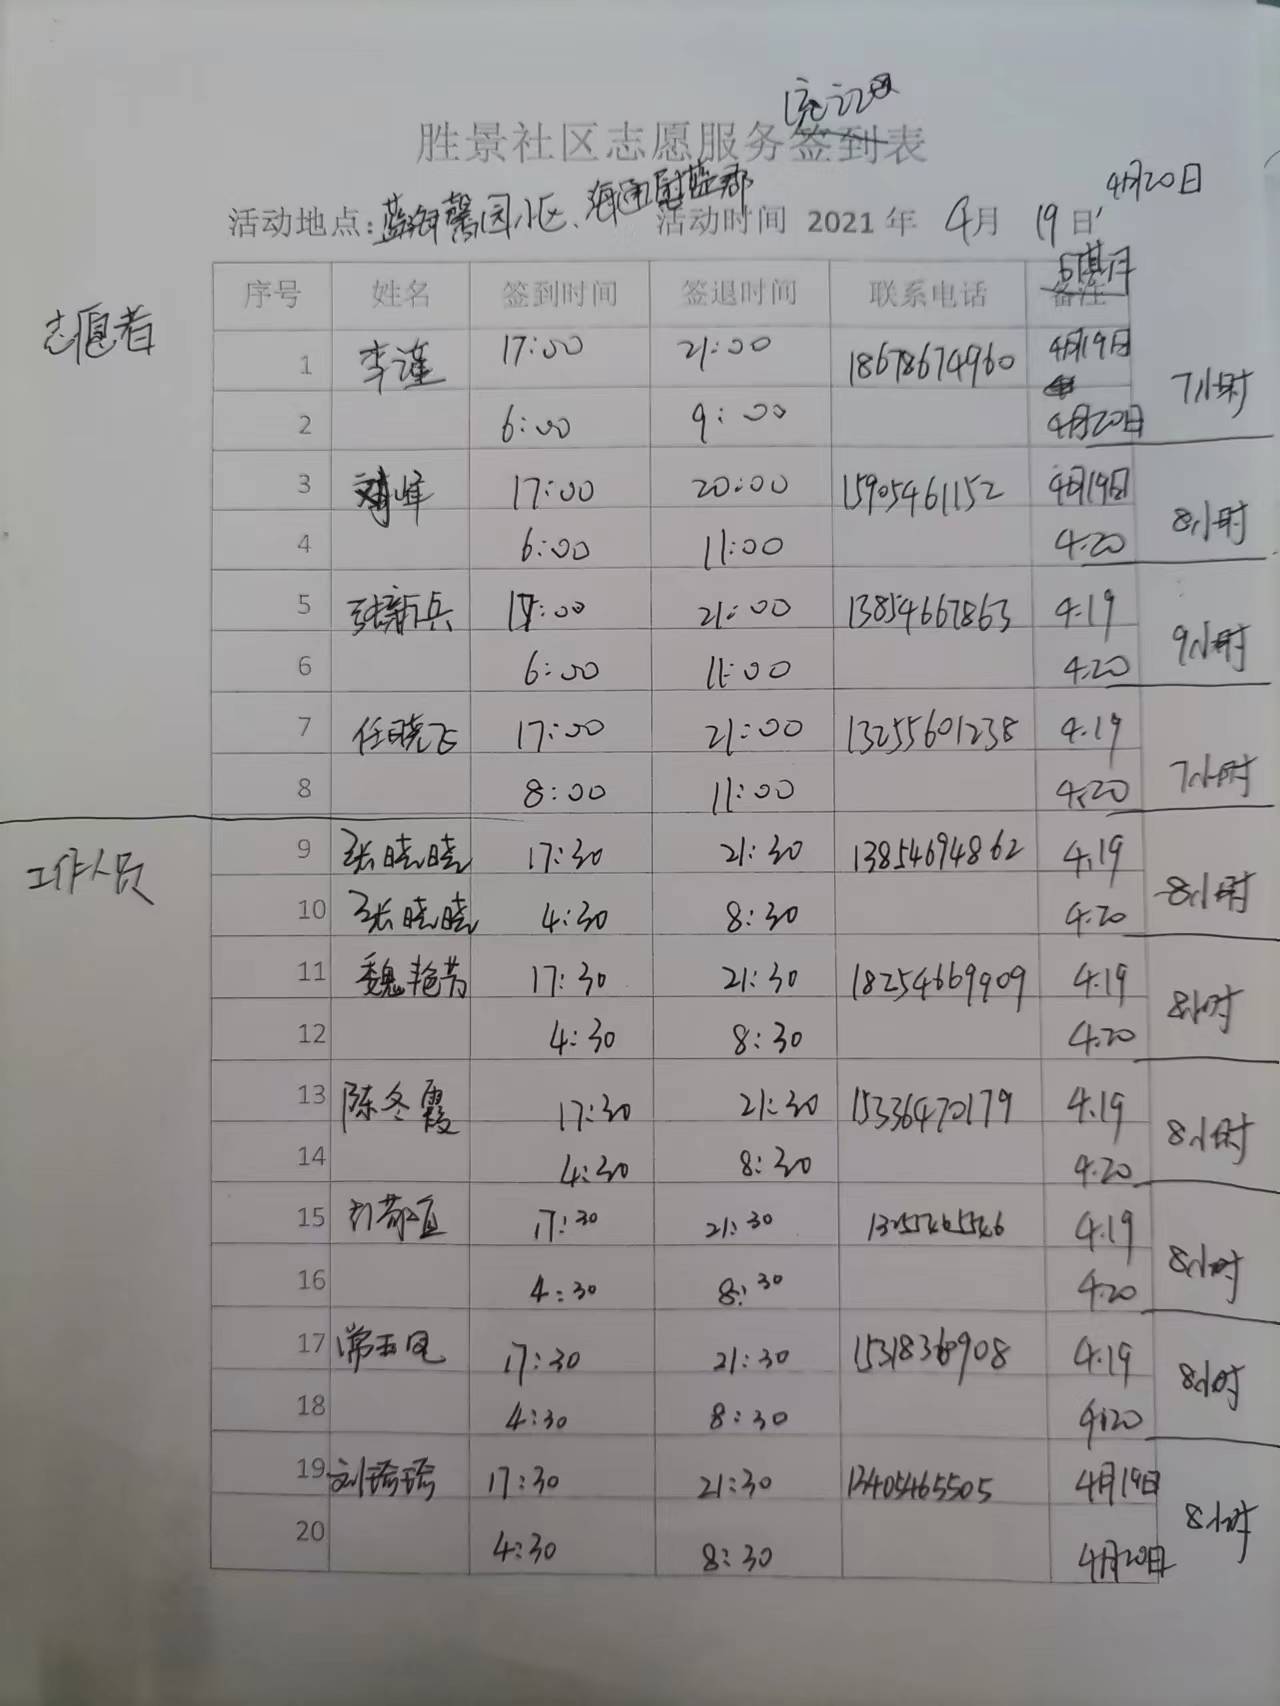 胜景社区志愿服务签到表
4月20日
活动地点:蓝海馨园小区、海通蔚蓝郡 活动时间 2021 年 4月 19 日
序号 姓名 签到时间 签退时间 联系电话 备注 日期
志愿者
1 李谨 17:00 21:00 18678674960 4月19日
7小时
2 6:00 9:00 4月20日
3 刘峰 17:00 20:00 15905461152 4月19日
8小时
4 6:00 11:00 4.20
5 张新兵 17:00 21:00 13854667863 4.19
9小时
6 6:00 11:00 4.20
7 任晓飞 17:00 21:00 13255601238 4.19
7小时
8 8:00 11:00 4.20
工作人员
9 张晓晓 17:30 21:30 13854694862 4.19
8小时
10 张晓晓 4:30 8:30 4.20
11 魏艳芳 17:30 21:30 18254669909 4.19
8小时
12 4:30 8:30 4.20
13 陈冬霞 17:30 21:30 15336470179 4.19
8小时
14 4:30 8:30 4.20
15 17:30 21:30 4.19
8小时
16 4:30 8:30 4.20
17 常玉凤 17:30 21:30 4.19
8小时
18 4:30 8:30 4.20
19 刘琦琦 17:30 21:30 13405465505 4月19日
8小时
20 4:30 8:30 4月20日